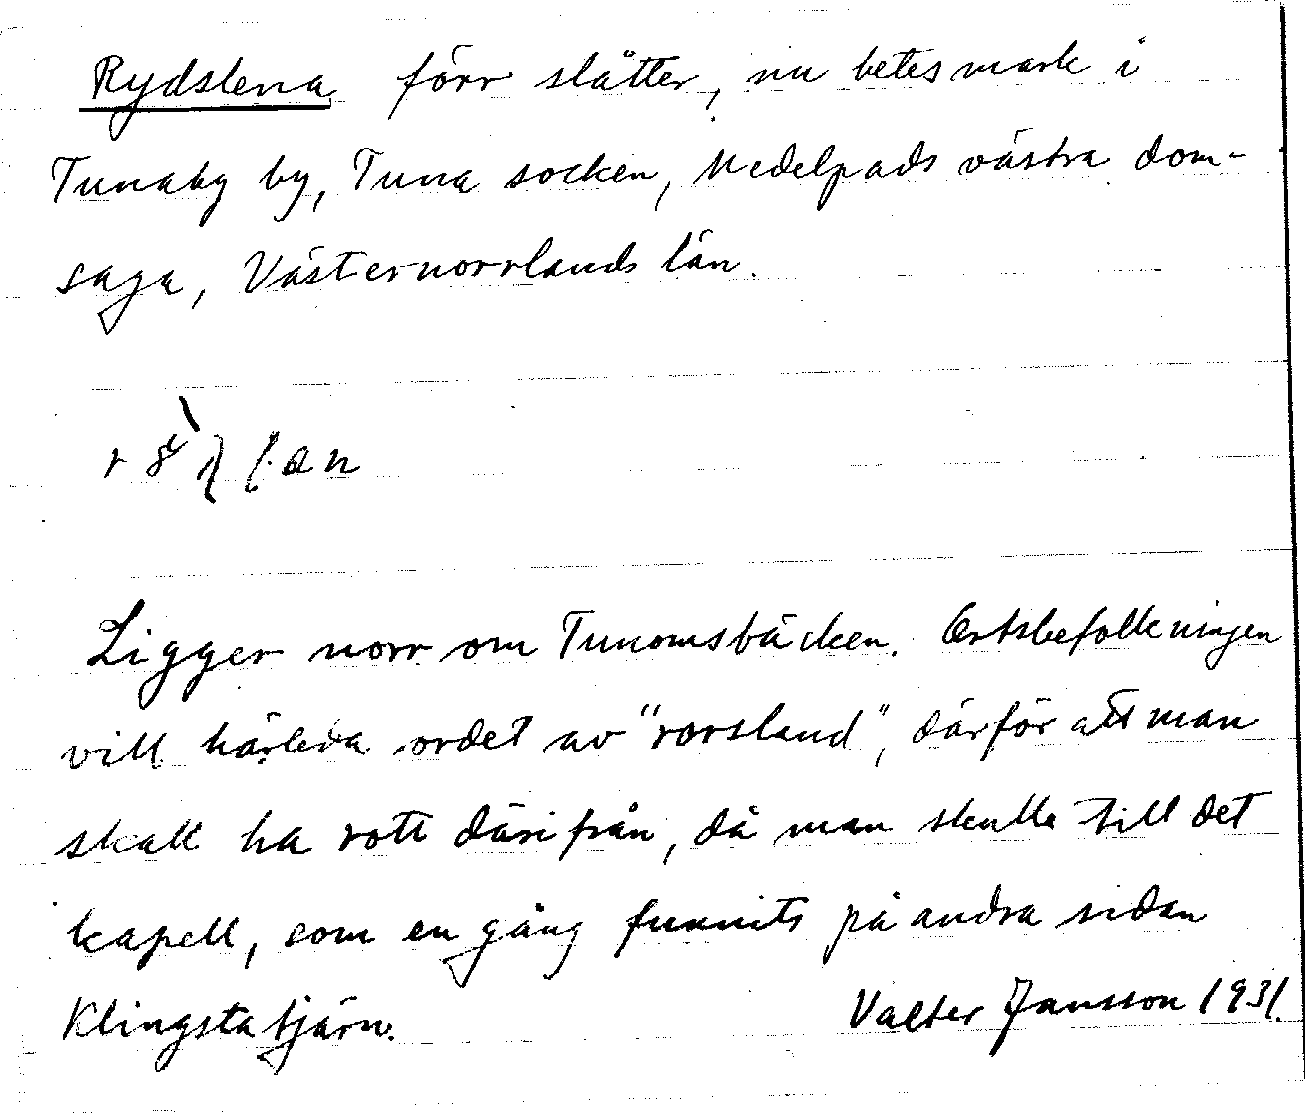 Rydslena förr slåtter, nu betesmark i
Tunaby by, Tuna socken, Medelpads västra dom-
saga, Västernorrlands län.
Ligger norr om Tunomsbäcken. Ortsbefolkningen
vill härleda ordet av "rorsland", därför att man
skall ha rott därifrån, då man skulle till det
kapell, som en gång funnits på andra sidan
Klingstatjärn. Valter Jansson 1931.